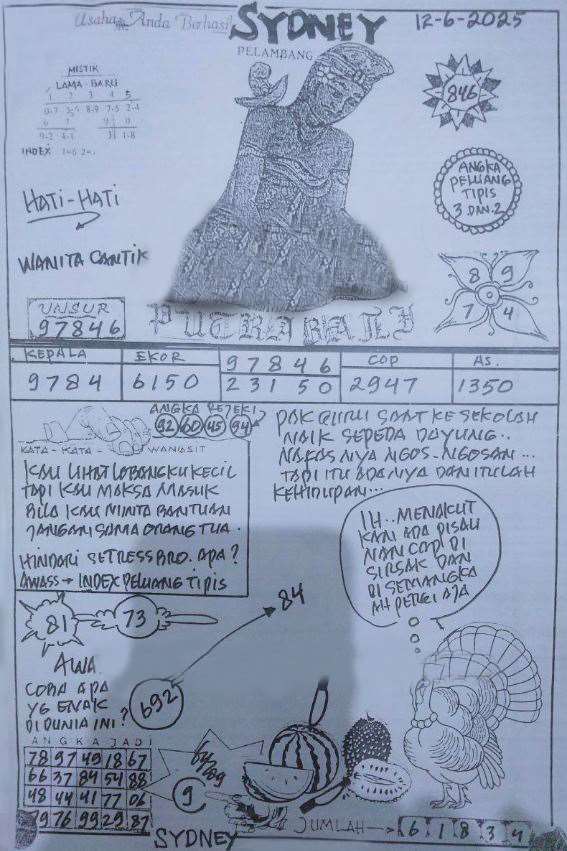 Usaha Anda Berhasil
SYDNEY
12-6-2025
PELAMBANG
MISTIK
LAMA - BARU
1 2 3 4 5
INDEX
846
HATI-HATI
ANGKA
PELUANG
TIPIS
3 DAN 2
WANITA CANTIK
8 9
7 4
UNSUR
97846
PUTRA BALI
KEPALA
9784
EKOR
6150
97846
23150
COP
2947
AS.
1350
ANGKA REJEKI
92 60 45 94
KATA - KATA - WANGSIT
KAU LIHAT LOBANGKU KECIL
TAPI KAU MAKSA MASUK
BILA KAU MINTA BANTUAN
JANGAN SAMA ORANG TUA.
HINDARI SETRESS BRO. APA?
AWASS → INDEX PELUANG TIPIS
PAK GURU SAAT KE SEKOLAH
NAIK SEPEDA DAYUNG..
NAFAS NYA NGOS-NGOSAN...
TAPI ITU ADANYA DAN ITULAH
KEHIDUPAN...
IH.. MENAKUT
KAN ADA PISAU
NANCAP DI
SIRSAK DAN
DI SEMANGKA
AH PERGI AJA
81
73
84
AWA
COBA APA
YG ENAK
DI DUNIA INI?
692
ANGKA JADI
78 97 49 18 67
66 37 84 54 88
48 44 41 77 06
79 76 99 29 87
9
SYDNEY
JUMLAH → 6 1 8 3 4